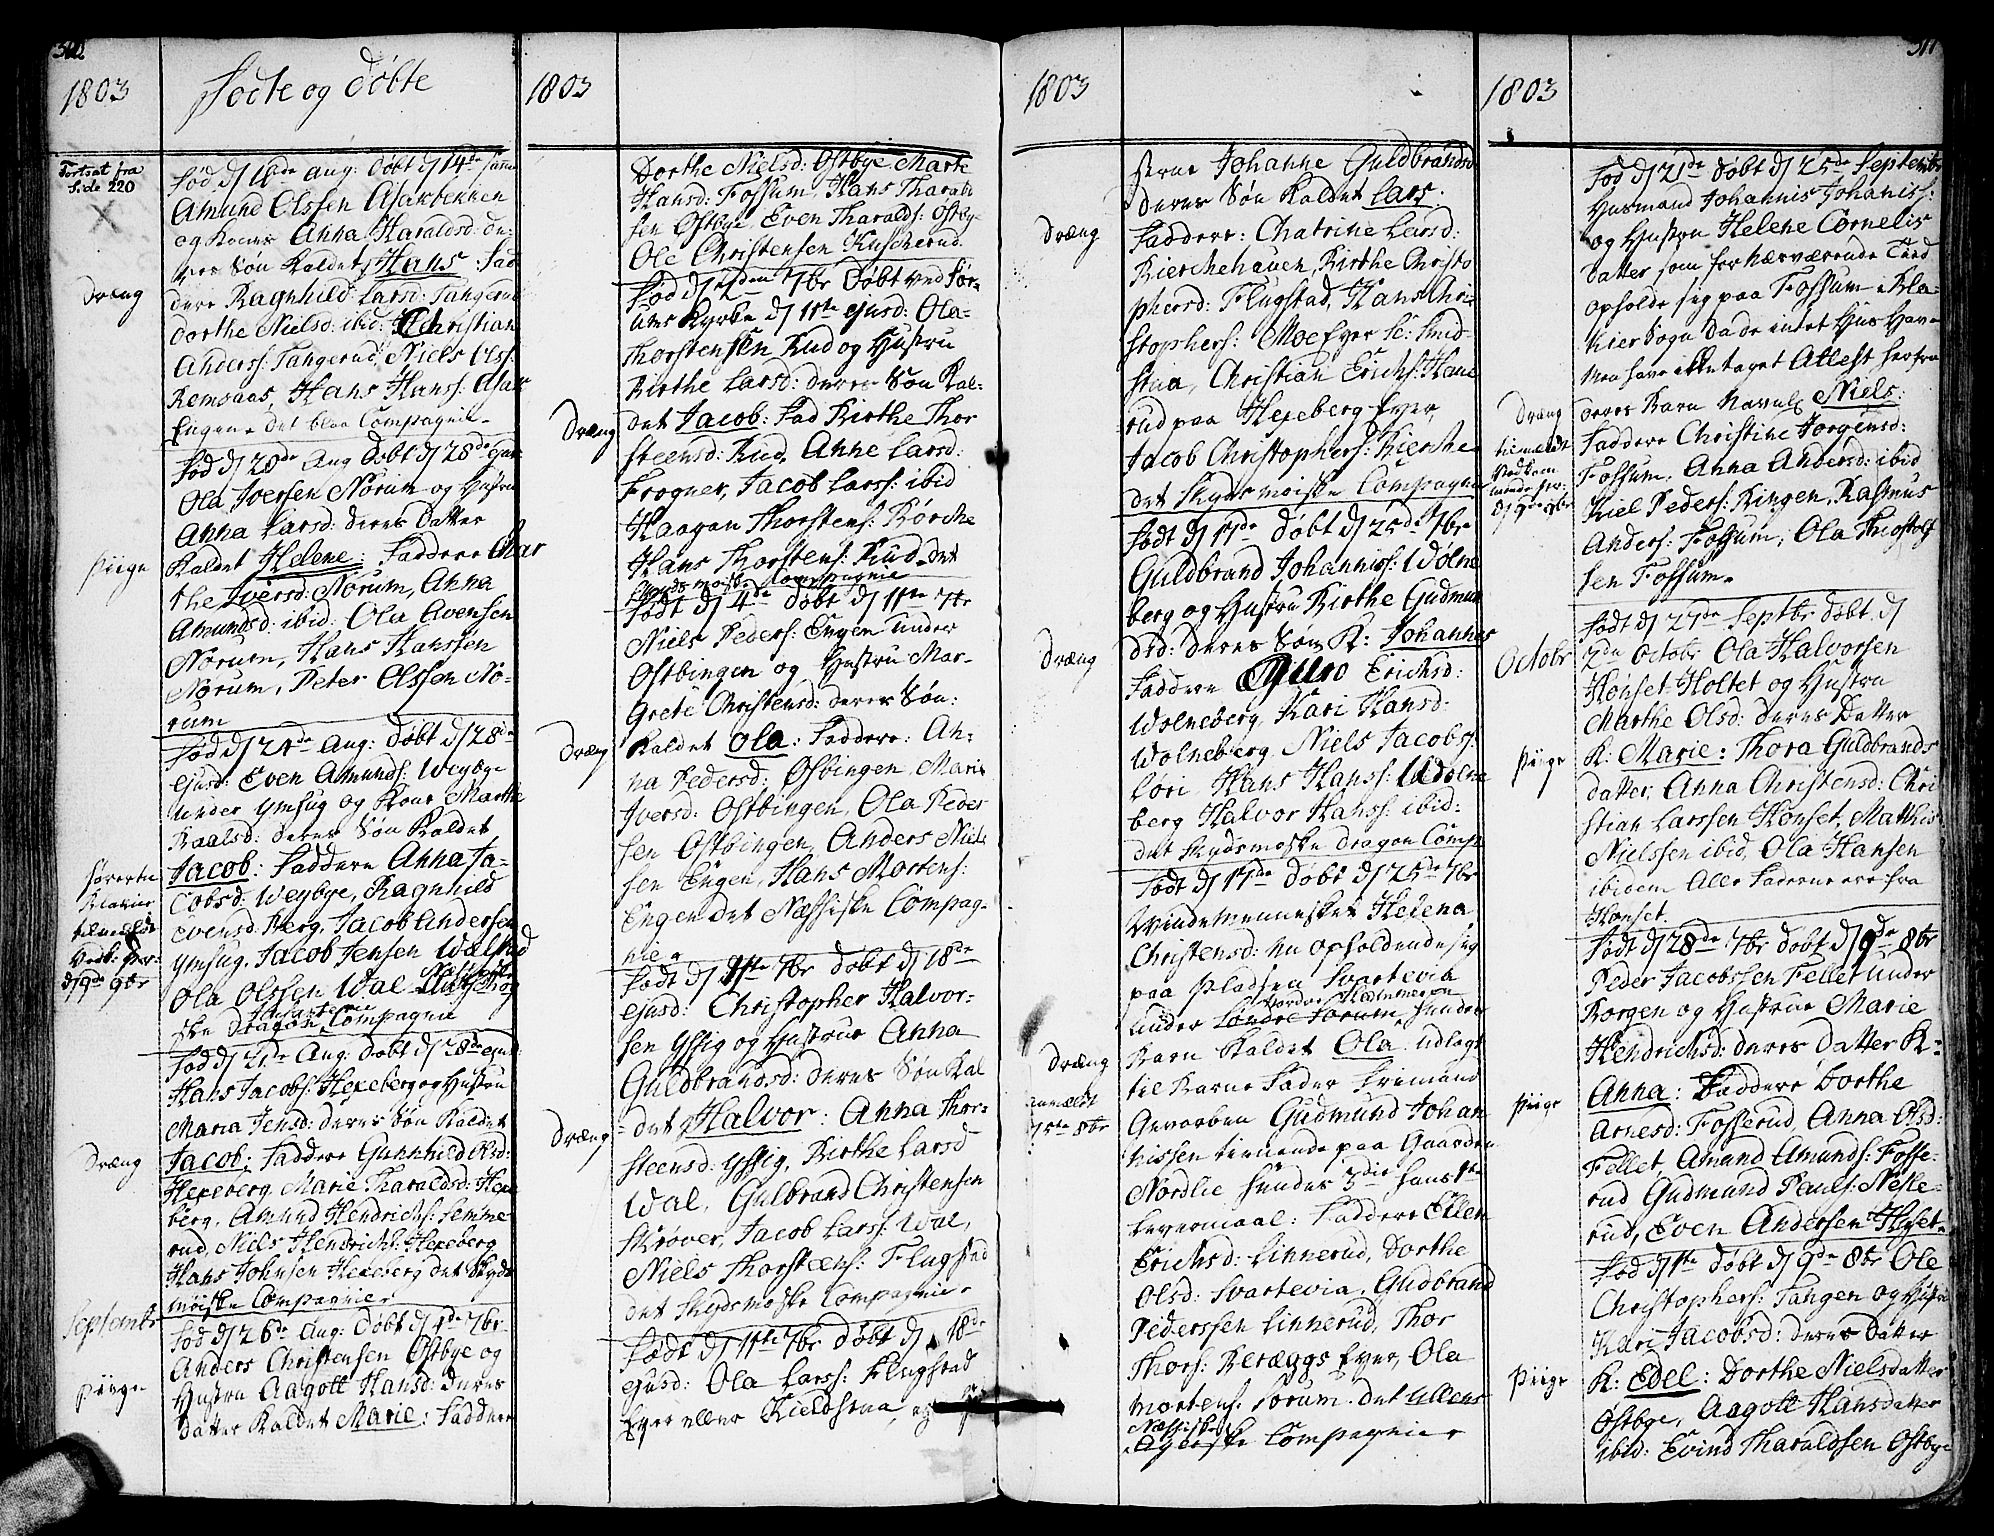 1803
Fødte og Døbte
Fortsat fra
Side 220
Dræng
Piige
Dræng
Septembr
Piige
Fød d 4de Aug: Døbt d 14de
Amund Olssen
og Kone Anna Haraldsd: de-
res Søn Kaldet Hans: Fad
dere Ragnhild Larsd: Tangerud
Dorthe Nielsd: ibid: Christian
Anderss: Tangerud, Niels Olss
Remsaas, Hans Hanss:
Engen det blaa Compagnie
Fød d 20de Aug Døbt d 28de ejusd
Ola Iversen Norum og Hustru
Anna Larsd: deres Datter
Kaldet Helene: Faddere Mar
the Iversd: Norum, Anna
Amundsd: ibid: Ola Evensen
Norum, Hans Hanssen
Norum, Peter Olssen No-
rum
Fød d 24de Aug: Døbt d 28de
ejusd: Even Amunds: Weybye
under Ymsug og Kone Marthe
Raalsd: deres Søn Kaldet
Jacob: Faddere Anna Ja-
cobsd: Weybye, Ragnhild
Evensd: Berg, Jacob Andersen
Ymsug, Jacob Jensen Walstad
Ola Olssen Wal
ske Dragon Compagnie
Fød d 21de Aug: Døbt d 28de ejusd
Hans Jacobs: Hexeberg og Hustru
Maria Jensd: deres Søn Kaldet
Jacob: Faddere Gunhild Olsd:
Hexeberg, Marie Tharaldsd: Hexe
berg, Amund Hendrichs: Lemme
rud, Niels Hendrichs: Hexeberg
Hans Johnsen Hexeberg det Skyds
moiske Compagnie
Fød d 26de Aug: Døbt d 4de 7br
Anders Christensen Østbye og
Hustru Aagott Hansd: deres
Datter Kaldet Marie: Faddere
1803
Dræng
Dræng
Dræng
Dorthe Nielsd: Østbye Marte
Hansd: Fossum, Hans Tharald
sen Østbye, Even Tharalds: Østbye
Ole Christensen Kuserud
Fød d 4den 7br Døbt ved Sør-
ums Kyrke d 11te ejusd: Ola
Thorstensen Rud og Hustru
Birthe Larsd: deres Søn Kal-
det Jacob: Fad Birthe Thor
steensd: Rud, Anne Larsd:
Frogner, Jacob Larss: ibid
Haagan Thorstens: Børche
Hans Thorstens: Rud det
Skydsmoske Compagnie
Født d 4de Døbt d 11te 7br
Niels Peders: Engen under
Østbingen og Hustru Mar-
grete Christensd: deres Søn:
Kaldet Ola: Faddere: An-
na Pedersd: Østbingen, Marie
Iversd: Østbingen, Ola Peder
sen Østbingen, Anders Niel
sen Engen, Hans Mortens:
Engen det Næssiske Compag-
nie
Født d 11te 7br Døbt d 18de
ejusd: Christopher Halvor-
sen Yssig og Hustrue Anna
Guldbrandsd: deres Søn Kal
det Halvor: Anna Thor-
steensd: Yssig, Birthe Larsd
Wal, Gulbrand Christensen
Skrøver, Jacob Larss: Wal,
Niels Thorstens: Flugstad
det Skydsmoske Compagnie
Født d 11te 7br Døbt d 18de
ejusd: Ola Larss: Flugstad
Eyer eller Kieldstua og
1803
Dræng
Dræng
Dræng
anmeldt
15de 8br
strue Johanne Guldbrandsd
deres Søn Kaldet Lars.
Faddere: Chatrine Larsd:
Kierchehauen, Birthe Christo
phersd: Flugstad, Hans Chri-
stophers: Moe
stua, Christian Erichs: Hane
rud paa Hexeberg Eyer,
Jacob Christophers: Kierche
det Skydsmoiske Compagnie
Født d 17de Døbt d 25de 7br
Guldbrand Johanniss: Wolne
berg og Hustru Birthe Gudmun
dsd: deres Søn K: Johannes
Faddere Erichsd:
Wolneberg, Kari Hansd:
Wolneberg Niels Jacobs:
Løri, Hans Hanss: Wolne
berg Halvor Hanss: ibid:
det Skydsmoske Dragon Comp
Født d 17de Døbt d 25de 7br
Qvindemennesket Helena
Christensd: nu opholdende sig
paa Pladsen Svartevia
under Søndre Sørum, hendes
Barn Kaldet Ola udlagt
til Barne Fader Friemand
Gevorben Gudmund Johan
nissen tienende paa Gaarden
Nordlie hendes 3die hans 1te
Leyermaal: Faddere Ellen
Erichsd: Linnerud, Dorthe
Olsd: Svartevia, Gudbrand
Pederssen Linnerud, Thor
Thors: Beræggs Eyer, Ola
Mortens: Sørum det Ullens
Næssiske
Agerske Compagnie
1803
Dræng
Octobr
Piige
Piige
Piige
Fød d 21de Døbt d 25de September
Husmand Johannis Johaniss:
og Hustru Helene Cornelis
datter som for nærværende Tiid
opholde sig paa Fossum i Bla-
kier Sogn da de intet Huus Have
Men have ikke taget Attest herfra
deres Barn Navnl: Niels:
Faddere Christine Jørgensd:
Fossum, Anna Andersd: ibid
Kiel Peders: Ringen, Rasmus
Anders: Fossum, Ola Thostolf
sen Fossum.
Født d 27de Septbr Døbt d
2de Octobr Ola Halvorsen
Hønset Holtet og Hustru
Marthe Olsd: deres Datter
K: Marie: Thora Guldbrands
datter, Anna Christensd: Chri
stian Larssen Hønset, Mathis
Nielssen ibid, Ola Hansen
ibidem Alle Fadderne ere fra
Hønset.
Født d 28de 7br Døbt d 9de 8br
Peder Jacobssen Fellet under
Borgen og Hustrue Marie
Hendrichsd: deres Datter K:
Anna: Faddere Dorthe
Arnesd: Fosserud, Anna Olsd:
Fellet, Amund Amunds: Fosse-
rud, Gudmund Pauls: Neske-
rud, Even Andersen Hønset
Fød d 1te Døbt d 9de 8br Ole
Christophers: Tangen og Hustru
Kari Jacobsd: deres Datter
K: Edel: Dorthe Nielsdatter
Østbye, Aagott Hansdatter
ibid: Evind Tharaldsen Østbye